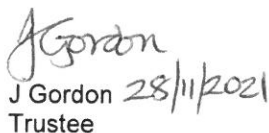 J Gordon
J Gordon 28/11/2021
Trustee